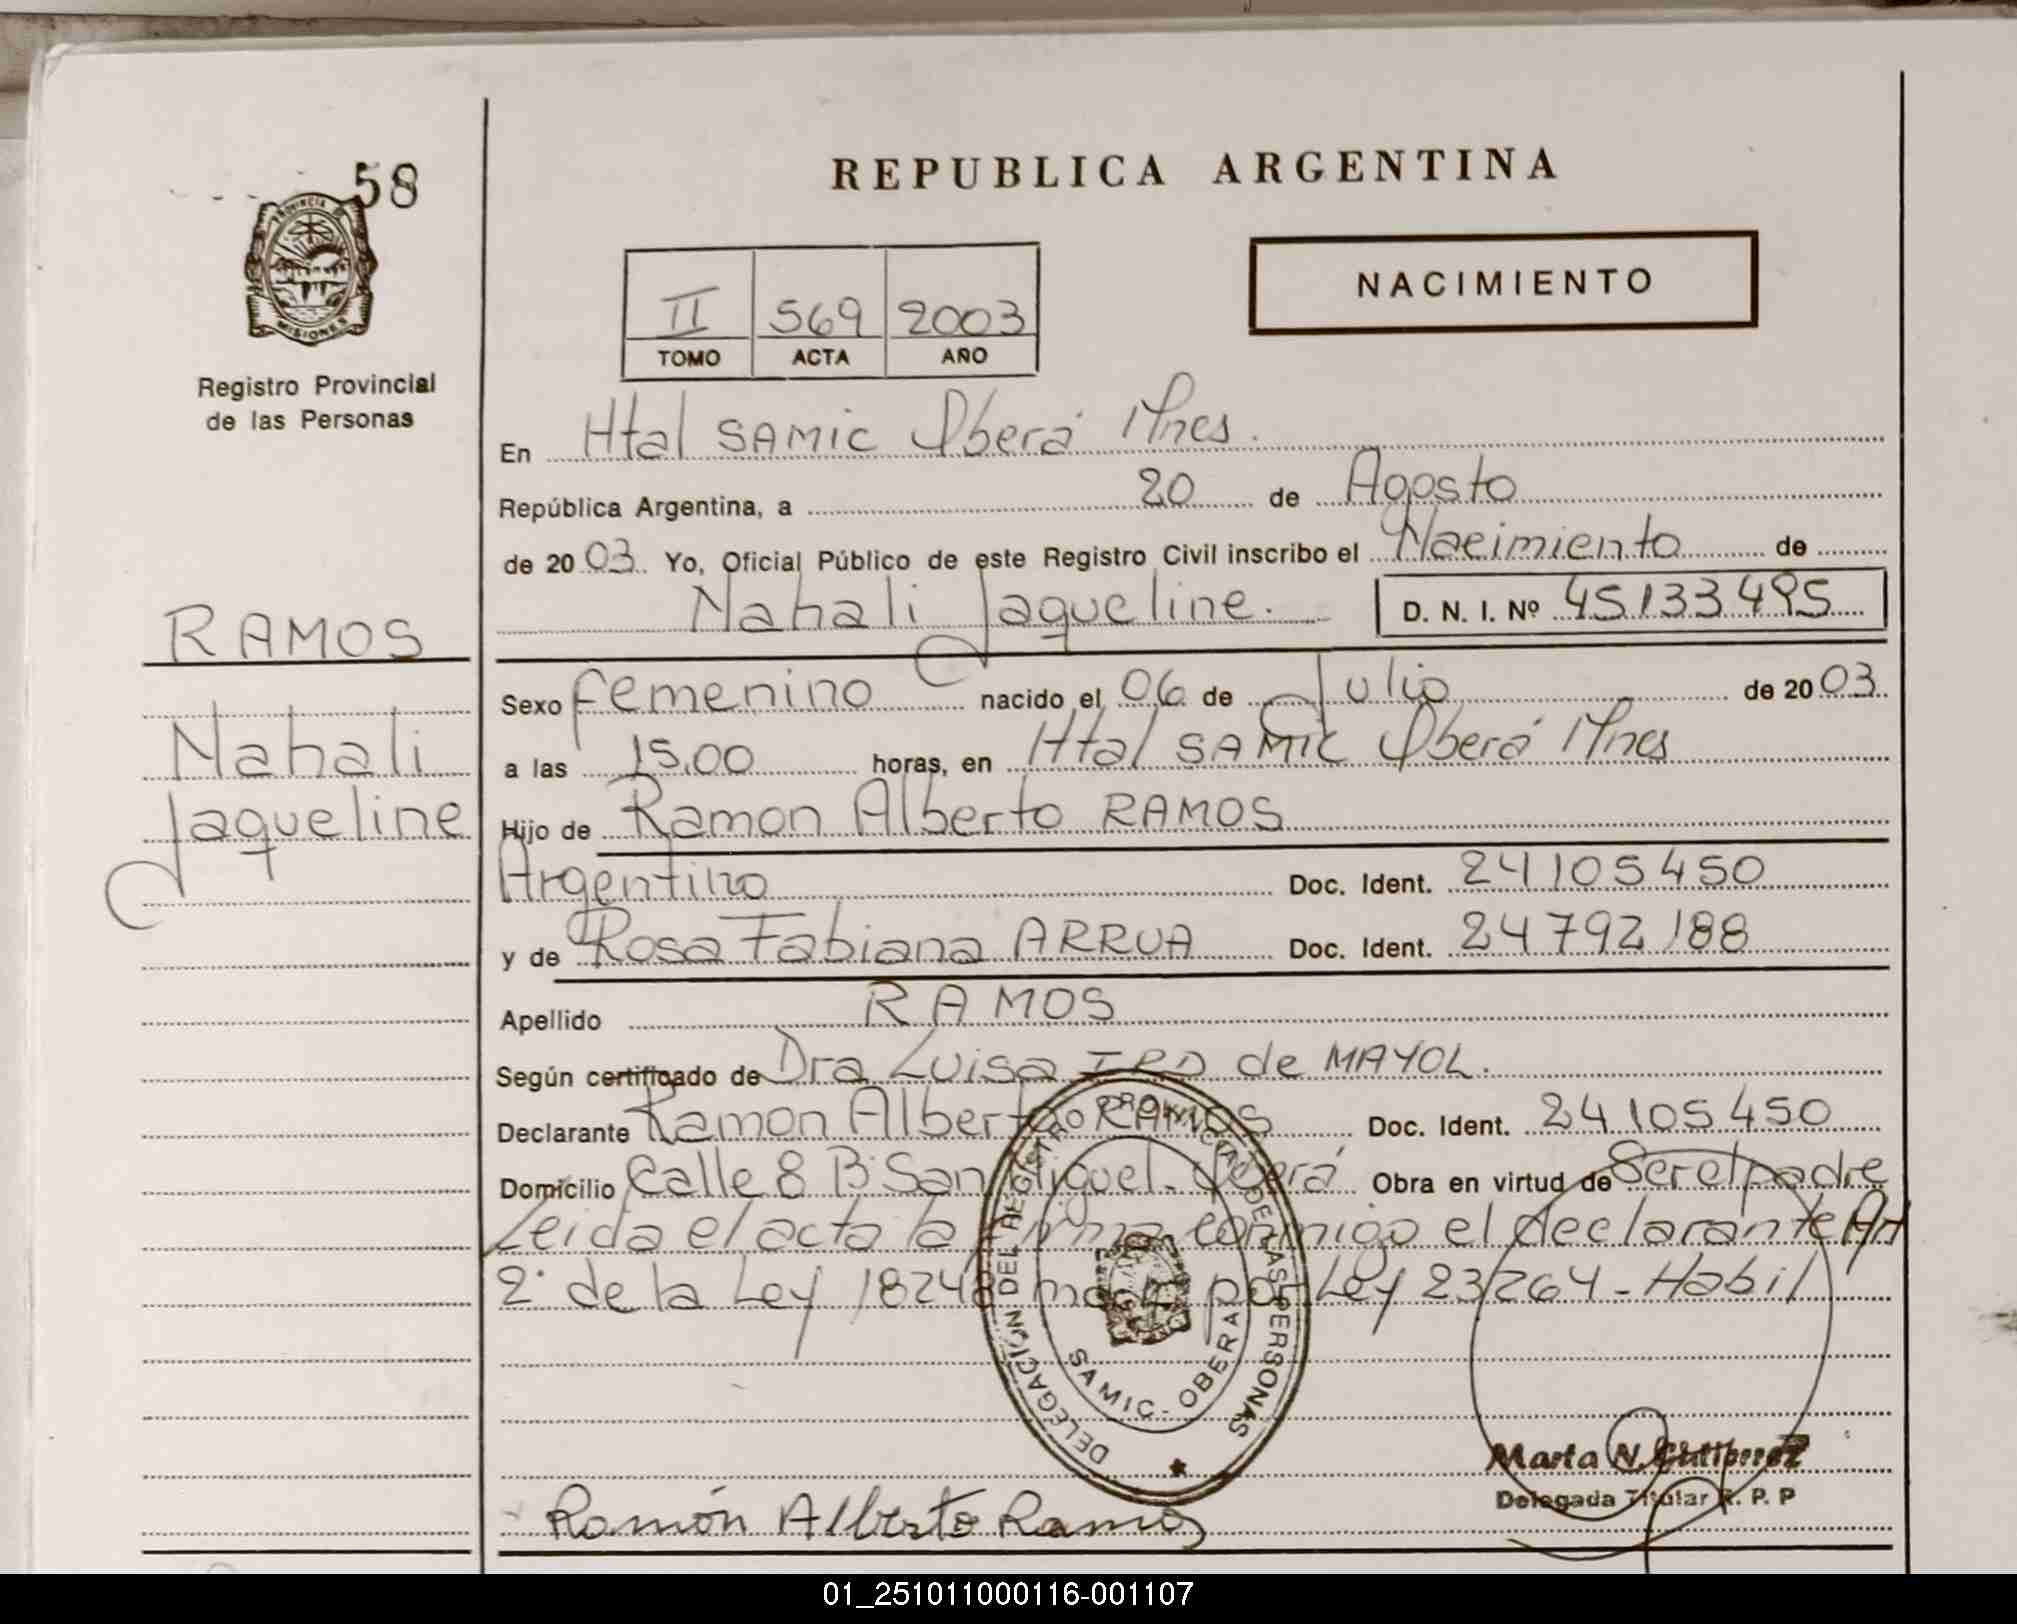 58
PROVINCIA DE
MISIONES
Registro Provincial
de las Personas
RAMOS
Nahali
Jaqueline
REPUBLICA ARGENTINA
II 569 2003
TOMO ACTA AÑO
NACIMIENTO
En Htal SAMIC Oberá Mnes.
República Argentina, a 20 de Agosto
de 2003. Yo, Oficial Público de este Registro Civil inscribo el Nacimiento de
Nahali Jaqueline. D. N. I. Nº 45133495
Sexo femenino nacido el 06 de Julio de 2003
a las 15,00 horas, en Htal SAMIC Oberá Mnes
Hijo de Ramon Alberto RAMOS
Argentino Doc. Ident. 24105450
y de Rosa Fabiana ARRUA Doc. Ident. 24792188
Apellido RAMOS
Según certificado de Dra Luisa de MAYOL.
Declarante Ramon Alberto RAMOS Doc. Ident. 24105450
Domicilio Calle 8 Bº San Miguel - Oberá Obra en virtud de Ser el padre
Leida el acta la firma conmigo el declarante Art
2º de la Ley 18248 mod. por Ley 23264 - Habil
DELEGACIÓN DEL REGISTRO PROVINCIAL DE LAS PERSONAS
SAMIC - OBERA
Marta N. Gutierrez
Delegada Titular R. P. P
Ramón Alberto Ramos
01_251011000116-001107